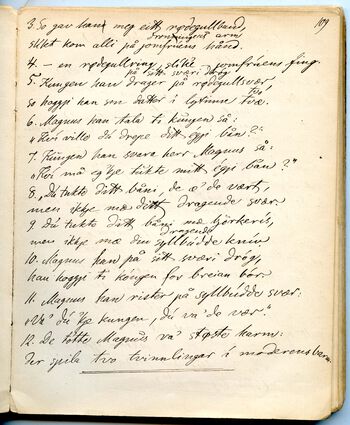 109
3. So gav han meg eitt rødgullband,
dronningens arm,
slikt kom alli på jomfruens hånd.
4. – en rødgullring, slike jomfruens fing
på sitt sværi dróg
5. Kungen han drager på rødgullsvær,
so hoggji han sin datter i lytinne tvæ.
6. Magnus han tala ti kungen så:
"Koi ville du drepe ditt eygji bån?"
7. Kungen han svara herr Magnus så:
"Koi må eg 'kje tukte mitt eygji bån?"
8. "Du tukte ditt båni, de æ' de vært,
men ikkje mæ ditt dragende svær.
9. Du tukte ditt båni mæ bjørkeris,
dragende
men ikkje mæ din syllbudde kniv
10. Magnus han på sitt sværi dróg,
han hoggji ti kongen for breian bór.
11. Magnus han rister på syllbudde svær:
"Va' du 'kje kungen, du va' de vær."
12. De totte Magnus va' støste harm:
der spila tvo tvinnlingar i moderens barm.